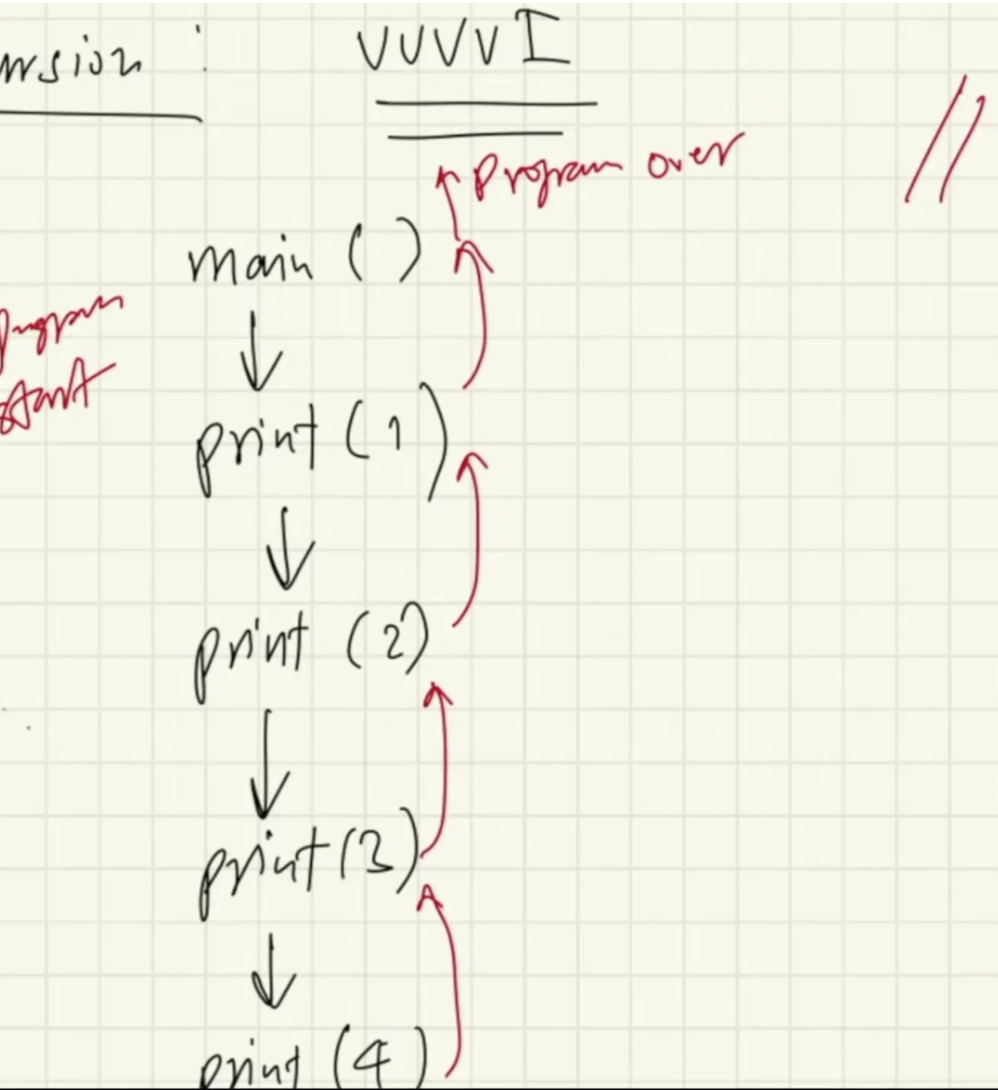 ursion : VVVV I
Program over
main ( )
Program
start
print (1)
print (2)
print (3)
print (4)